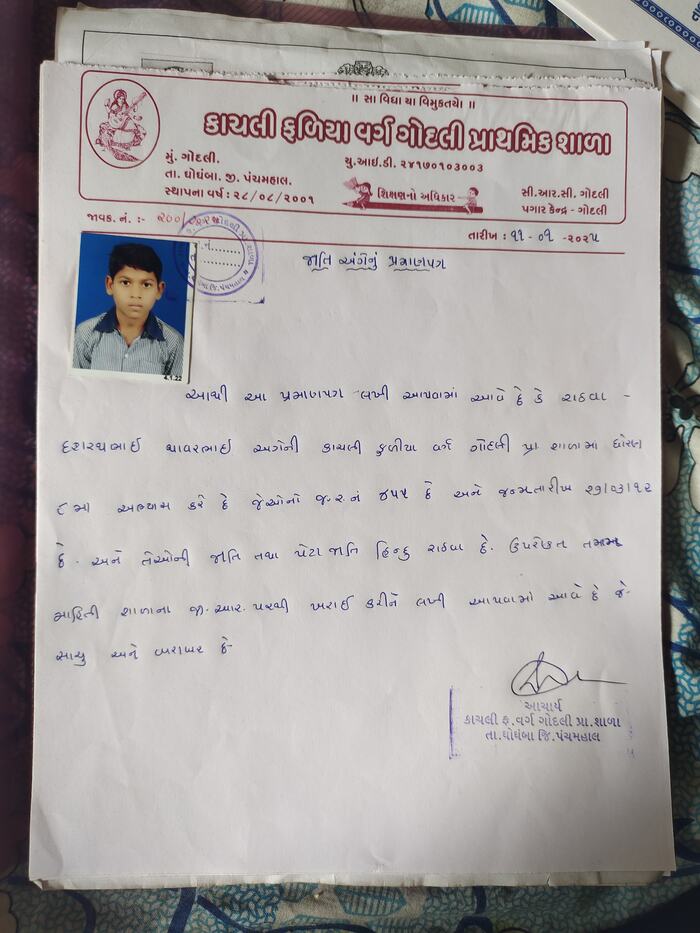 ॥ સા વિદ્યા યા વિમુક્તયે। ॥
કાચલી ફળિયા વર્ગ ગોદલી પ્રાથમિક શાળા
મું. ગોદલી.
યુ.આઈ.ડી. ૨૪૧૭૦૧૦૩૦૦૩
તા. ઘોઘંબા. જી. પંચમહાલ.
સ્થાપના વર્ષ : ૨૮/૦૮/૨૦૦૧
શિક્ષણનો અધિકાર
સી.આર.સી. ગોદલી
પગાર કેન્દ્ર - ગોદલી
જાવક. નં. :-
તારીખ : ૧૧ - ૦૧ - ૨૦૨૫
જાતિ અંગેનું પ્રમાણપત્ર
4.1.22
આથી આ પ્રમાણપત્ર લખી આપવામાં આવે છે કે રાઠવા -
દશરથભાઈ ચાવરભાઈ અત્રેની કાચલી ફળીયા વર્ગ ગોદલી પ્રા શાળામાં ધોરણ
૮ મા અભ્યાસ કરે છે જેઓનો જી.ર.નં ૪૫૨ છે અને જન્મતારીખ ૨૧/૦૩/૧૨
છે. અને તેઓની જાતિ તથા પેટા જાતિ હિન્દુ રાઠવા છે. ઉપરોક્ત તમામ
માહિતી શાળાના જી.આર. પરથી ખરાઈ કરીને લખી આપવામાં આવે છે જે-
સાચુ અને બરાબર છે-
આચાર્ય
કાચલી ફ.વર્ગ ગોદલી પ્રા.શાળા
તા.ઘોઘંબા જિ.પંચમહાલ